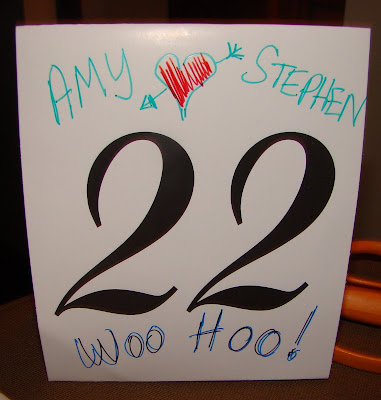 AMY STEPHEN
22
WOO HOO!